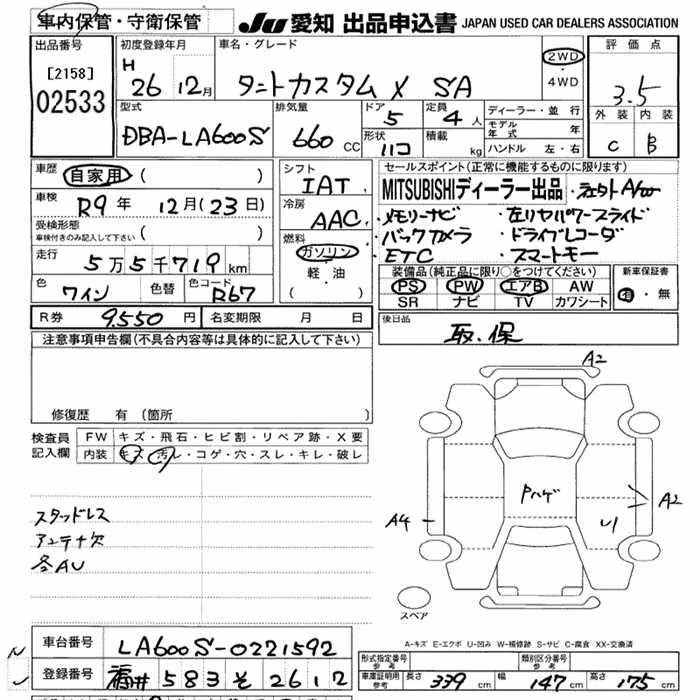 車内保管・守衛保管
JU 愛知 出品申込書 JAPAN USED CAR DEALERS ASSOCIATION
出品番号
[2158]
02533
初度登録年月
H 26 12月
車名・グレード
タントカスタム X SA
2WD
・
4WD
評価点
3.5
外装 内装
C B
型式
DBA-LA600S
排気量
660 CC
ドア
5
定員
4 人
形状
ハコ
積載
kg
ディーラー・並 行
モデル年式 年
ハンドル 左・右
車歴
自家用 ( )
車検
R9 年 12月(23日)
受検形態
車検付きのみ記入して下さい ( )
走行
5万5千719 km
色
ワイン
色替
色コード
R67
シフト
IAT
冷房
AAC
燃料
ガソリン
・
軽・油
( )
セールスポイント(正常に機能するものに限ります)
MITSUBISHIディーラー出品
・メモリーナビ ・左リヤパワースライド
・バックカメラ ・ドライブレコーダ
・ETC ・スマートキー
装備品(純正品に限り○をつけてください)
PS PW エアB AW
SR ナビ TV カワシート
新車保証書
有・無
R券 9,550 円
名変期限 月 日
後日品
取・保
注意事項申告欄(不具合内容等は具体的に記入して下さい)
修復歴 有 (箇所
検査員
記入欄
FW キズ・飛石・ヒビ割・リペア跡・X要
内装 キズ・汚レ・コゲ・穴・スレ・キレ・破レ
スタッドレス
アンテナ欠
各AU
A2
Pハゲ
A4
A2
U1
スペア
A-キズ E-エクボ U-凹み W-補修跡 S-サビ C-腐食 XX-交換済
車台番号
LA600S-0221592
登録番号
福井 583 そ 2612
形式指定番号
参考
類別区分番号
参考
車庫証明用
参考
長さ 339 cm 幅 147 cm 高さ 175 cm